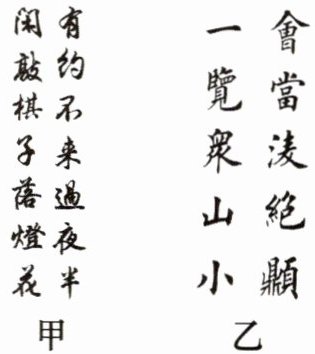 有約不来過夜半
閑敲棋子落燈花
甲
會當淩絕𩕢
一覽衆山小
乙